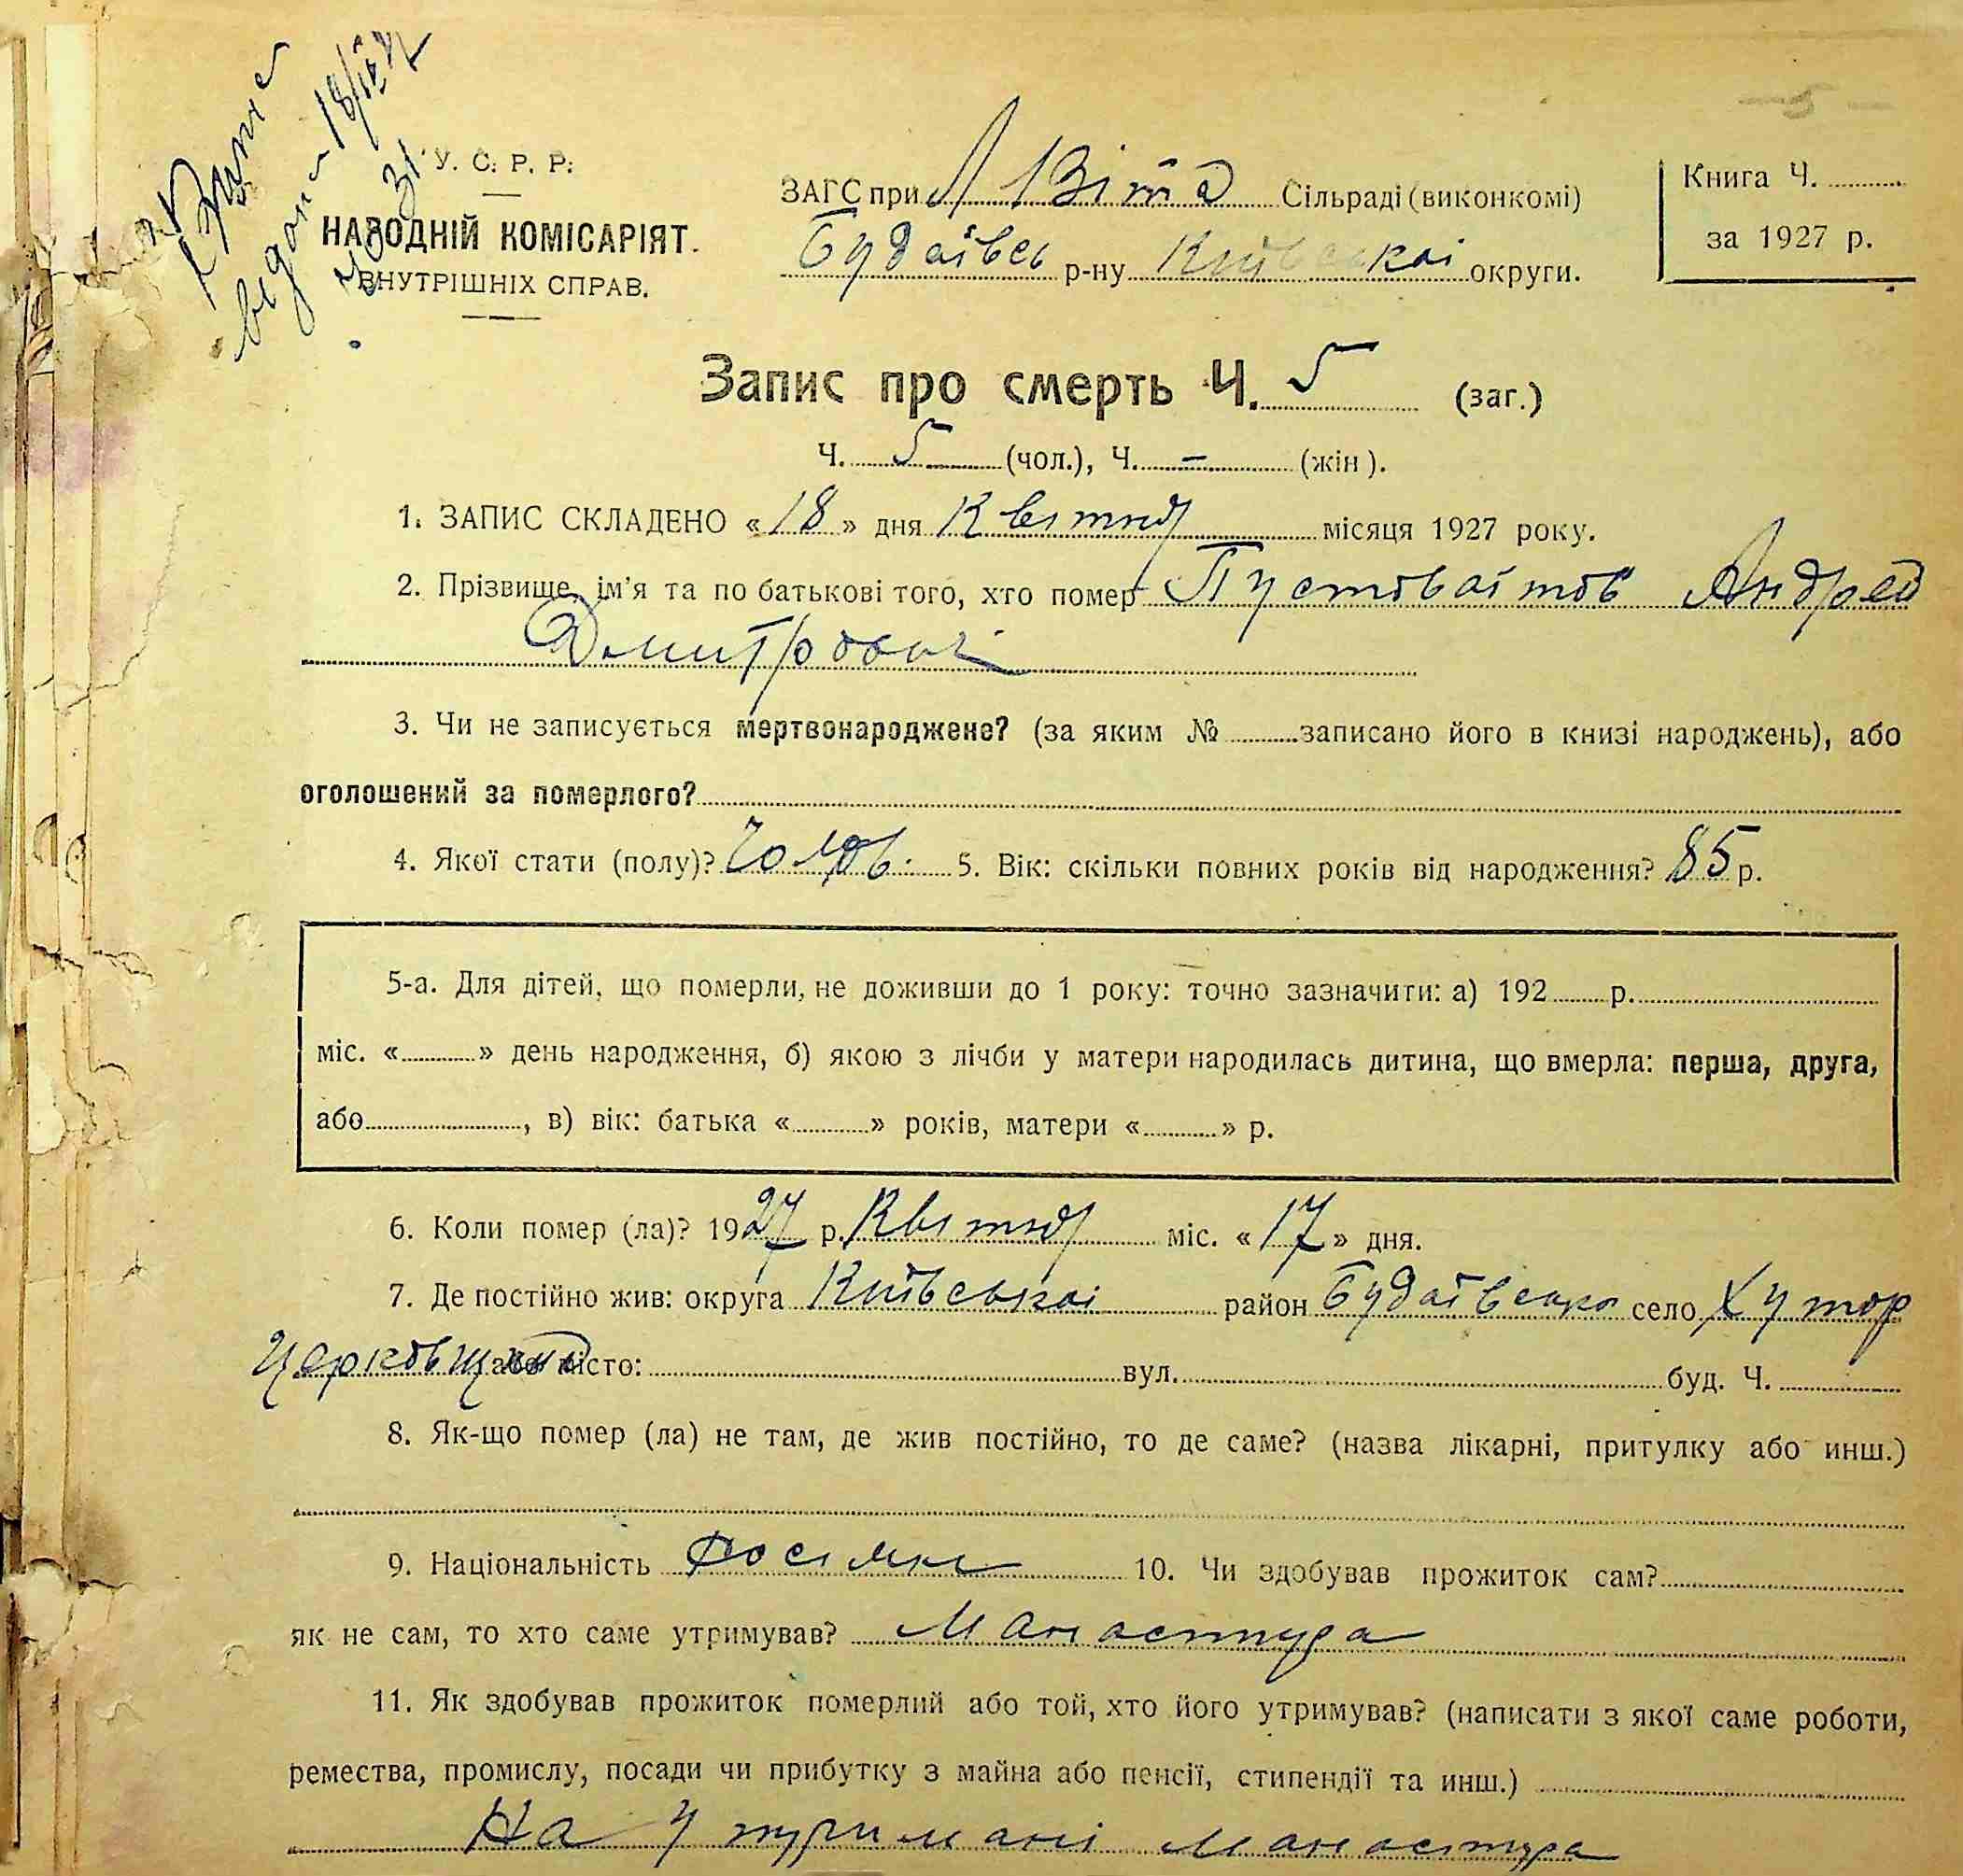 видано 18/IV
У. С. Р. Р.
НАРОДНІЙ КОМІСАРІЯТ
ВНУТРІШНІХ СПРАВ.
ЗАГС при Л Віта Сільраді (виконкомі)
Будаївсь р-ну Київської округи.
Книга Ч.
за 1927 р.
Запис про смерть Ч. 5 (заг.)
Ч. 5 (чол.), Ч. – (жін).
1. ЗАПИС СКЛАДЕНО «18» дня Квітня місяця 1927 року.
2. Прізвище, ім'я та по батькові того, хто помер Пустовайтов Андрей
Дмитрович
3. Чи не записується мертвонароджене? (за яким № записано його в книзі народжень), або
оголошений за померлого?
4. Якої стати (полу)? Чолов. 5. Вік: скільки повних років від народження? 85 р.
5-а. Для дітей, що померли, не доживши до 1 року: точно зазначити: а) 192 р.
міс. « » день народження, б) якою з лічби у матери народилась дитина, що вмерла: перша, друга,
або , в) вік: батька « » років, матери « » р.
6. Коли помер (ла)? 1927 р. Квітня міс. «17» дня.
7. Де постійно жив: округа Київської район Будаївсько село Хутор
Церковщина або місто: вул. буд. Ч.
8. Як-що помер (ла) не там, де жив постійно, то де саме? (назва лікарні, притулку або инш.)
9. Національність 10. Чи здобував прожиток сам?
як не сам, то хто саме утримував? Манастира
11. Як здобував прожиток померлий або той, хто його утримував? (написати з якої саме роботи,
ремества, промислу, посади чи прибутку з майна або пенсії, стипендії та инш.)
На Утримані Манастира